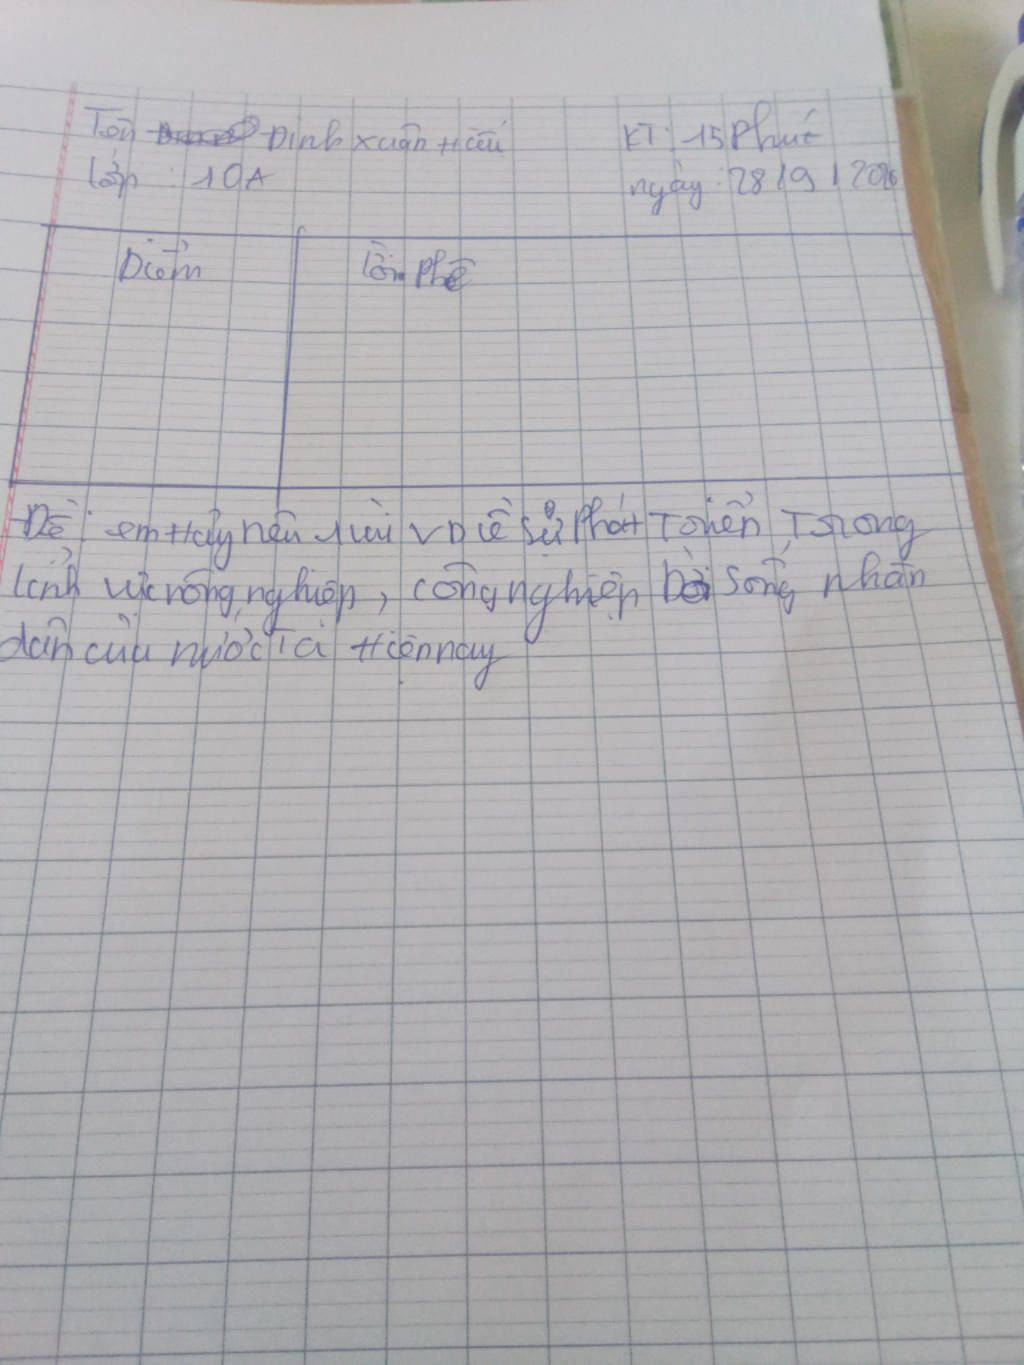 Tên Đinh Xuân Hiếu KT: 15 Phút
Lớp : 10A ngày : 28/9/2026
Điểm Lời Phê
Đề : em Hãy nêu 1 vài VD về sự Phát Triển Trong
Lĩnh vực nông nghiệp, công nghiệp Đời sống nhân
dân của nước Ta Hiện nay